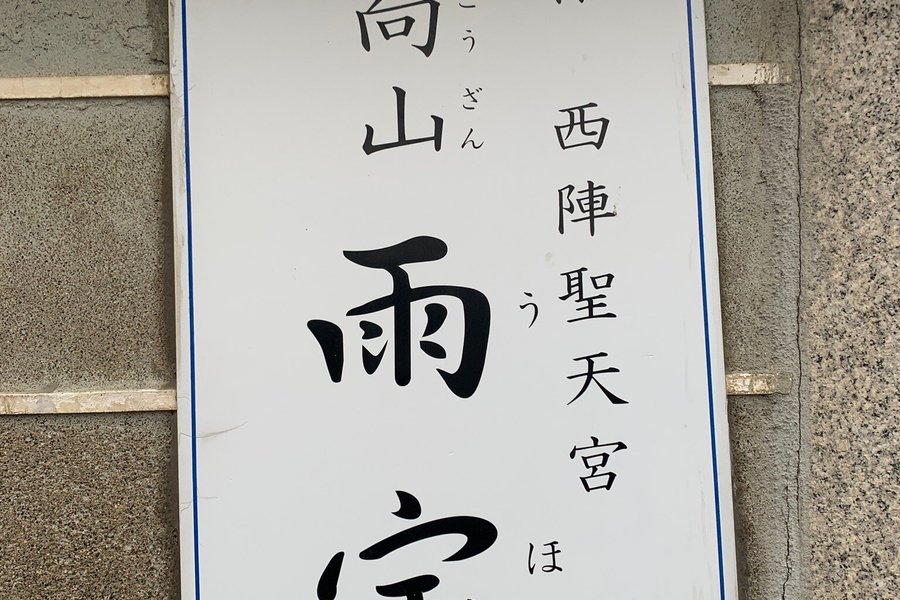 西陣聖天宮
うほ
こうざん
向山
雨宝